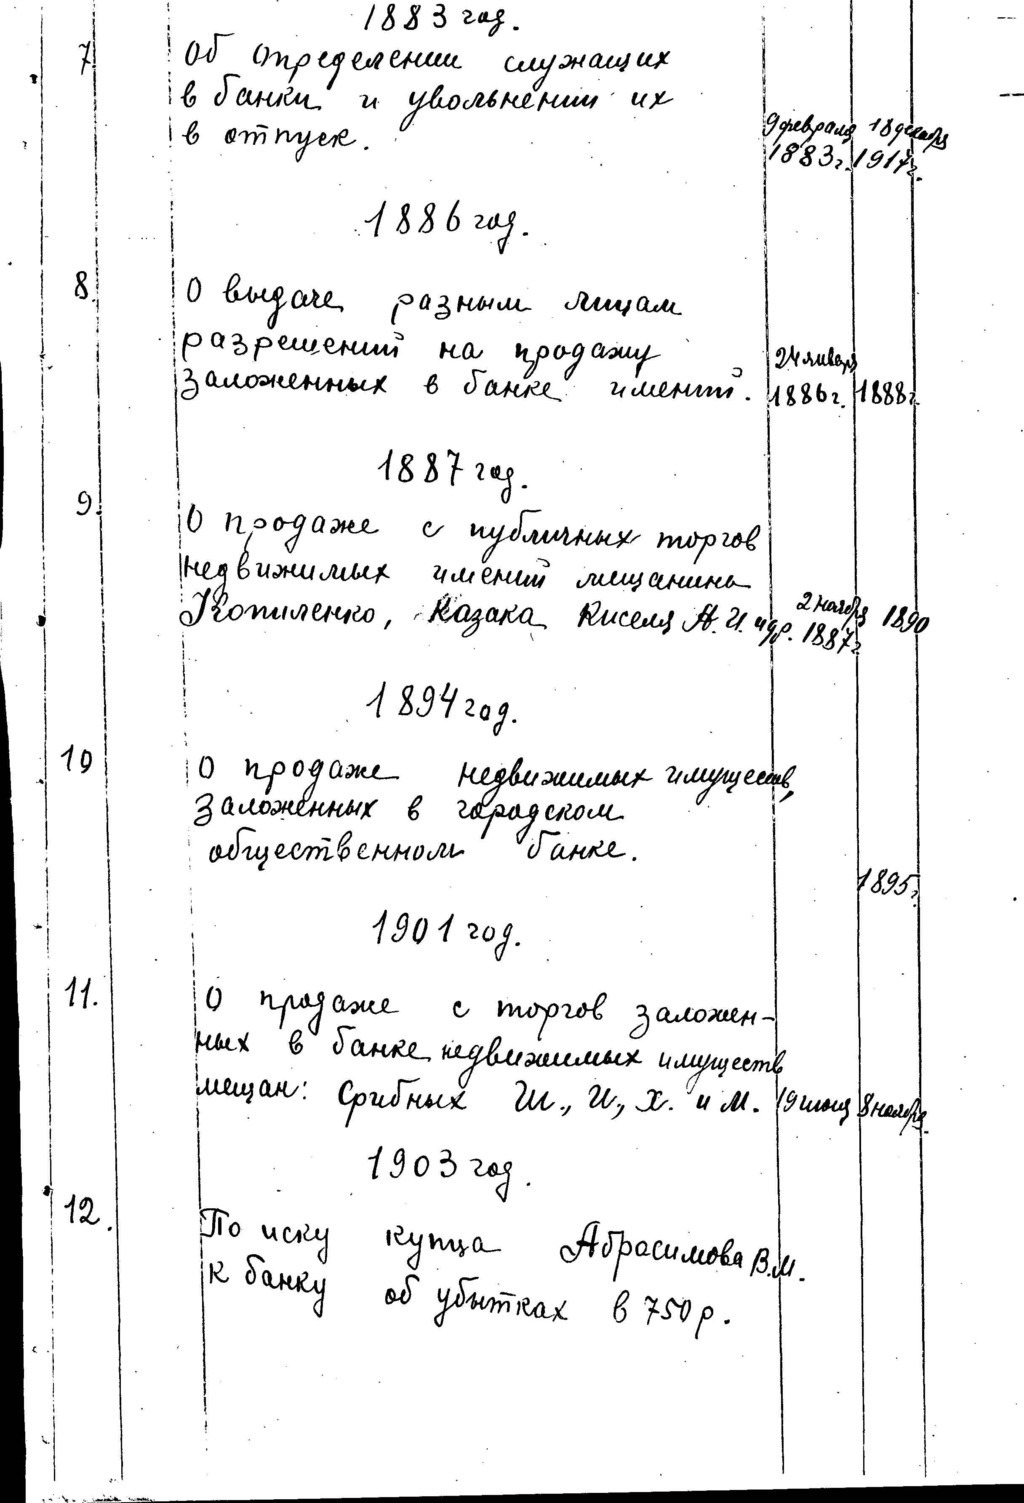 1883 год.
7. Об определении служащих
в банки и увольнении их
в отпуск. 9 февраля 1883 г. 18 декабря 1917 г.
1886 год.
8. О выдаче разным лицам
разрешений на продажу
заложенных в банке имений. 24 января 1886 г. 1888 г.
1887 год.
9. О продаже с публичных торгов
недвижимых имений мещанина
Копиленко, казака Киселя А.И. и др. 2 ноября 1887 г. 1890
1894 год.
10 О продаже недвижимых имуществ,
заложенных в городском
общественном банке. 1895 г.
1901 год.
11. О продаже с торгов заложен-
ных в банке недвижимых имуществ
мещан: Срибных Ш., И., Х. и М. 19 июня 8 ноября
1903 год.
12. По иску купца Абрасимова В.М.
к банку об убытках в 750 р.